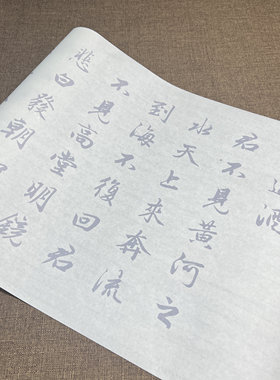 酒
君不見黃河之
水天上來奔流
到海不復回君
不見高堂明鏡
悲白發朝